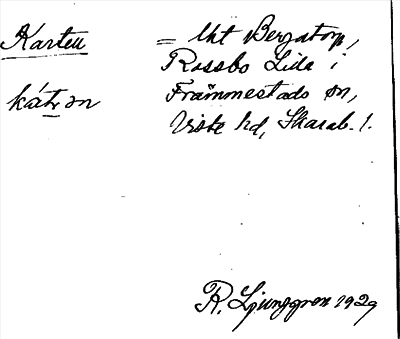 Karten = Uht Bergatorp,
Rossbo Lida i
kát͜r ən Främmestads sn,
Viste hd, Skarab. l.
R. Ljunggren 1929